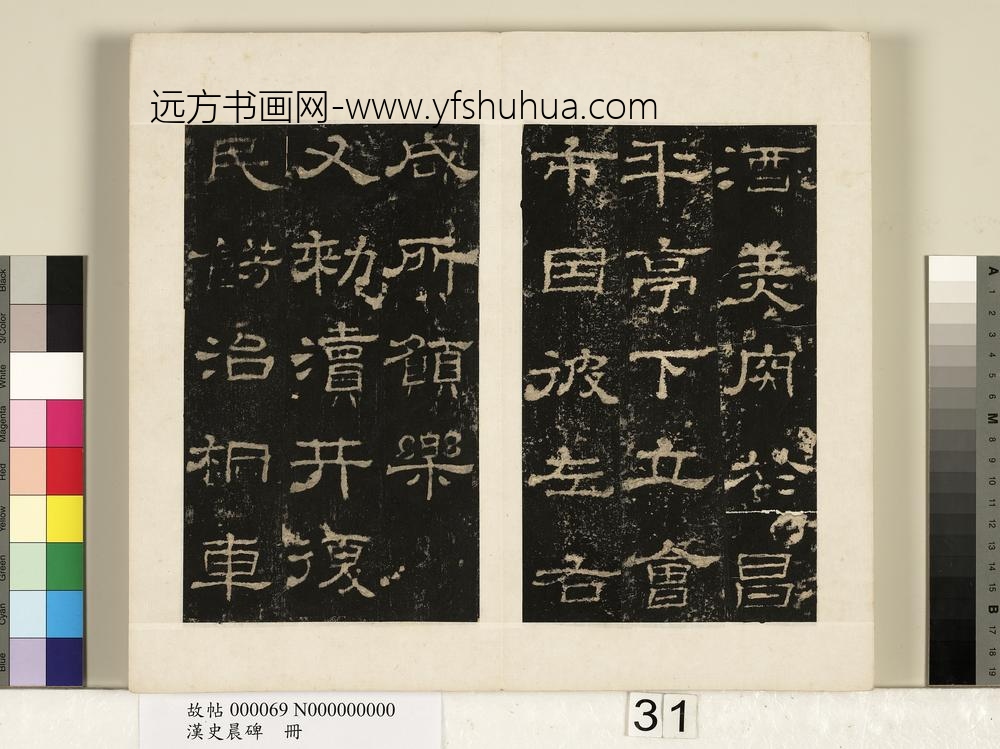 远方书画网-www.yfshuhua.com
酒美肉於昌
平亭下立會
市因彼左右
咸所願樂
又勑瀆井復
民餝治桐車
Black
3/Color
White
Magenta
Red
Yellow
Green
Cyan
Blue
A
1
2
3
4
5
6
M
8
9
10
11
12
13
14
15
B
17
18
19
故帖 000069 N000000000
漢史晨碑 冊
31